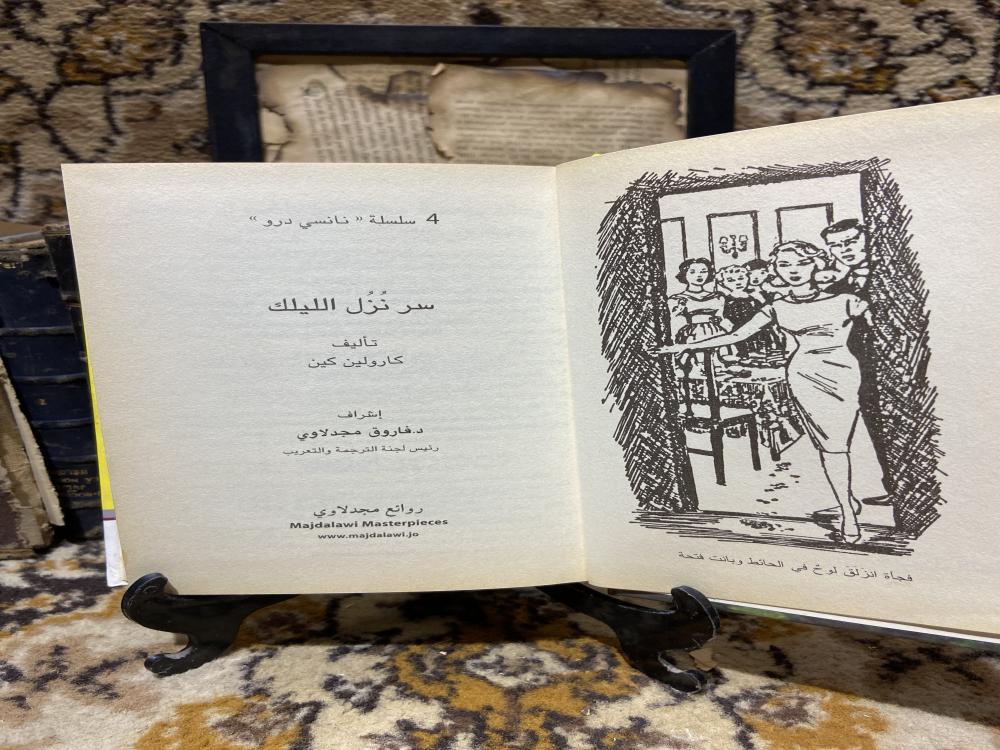 4 سلسلة « نانسي درو »
سر نُزُل الليلك
تأليف
كارولين كين
إشراف
د.فاروق مجدلاوي
رئيس لجنة الترجمة والتعريب
روائع مجدلاوي
Majdalawi Masterpieces
www.majdalawi.jo
فجأة انزَلَقَ لوحٌ في الحائط وبانت فتحة